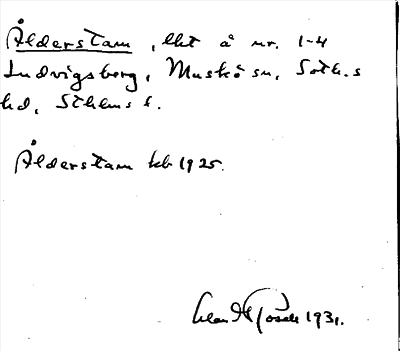 Ålderstam, lht å nr. 1-4
Ludvigsberg, Muskö sn, Soth.s
hd, Sthlms l.
Ålderstam kb 1925.
1931.